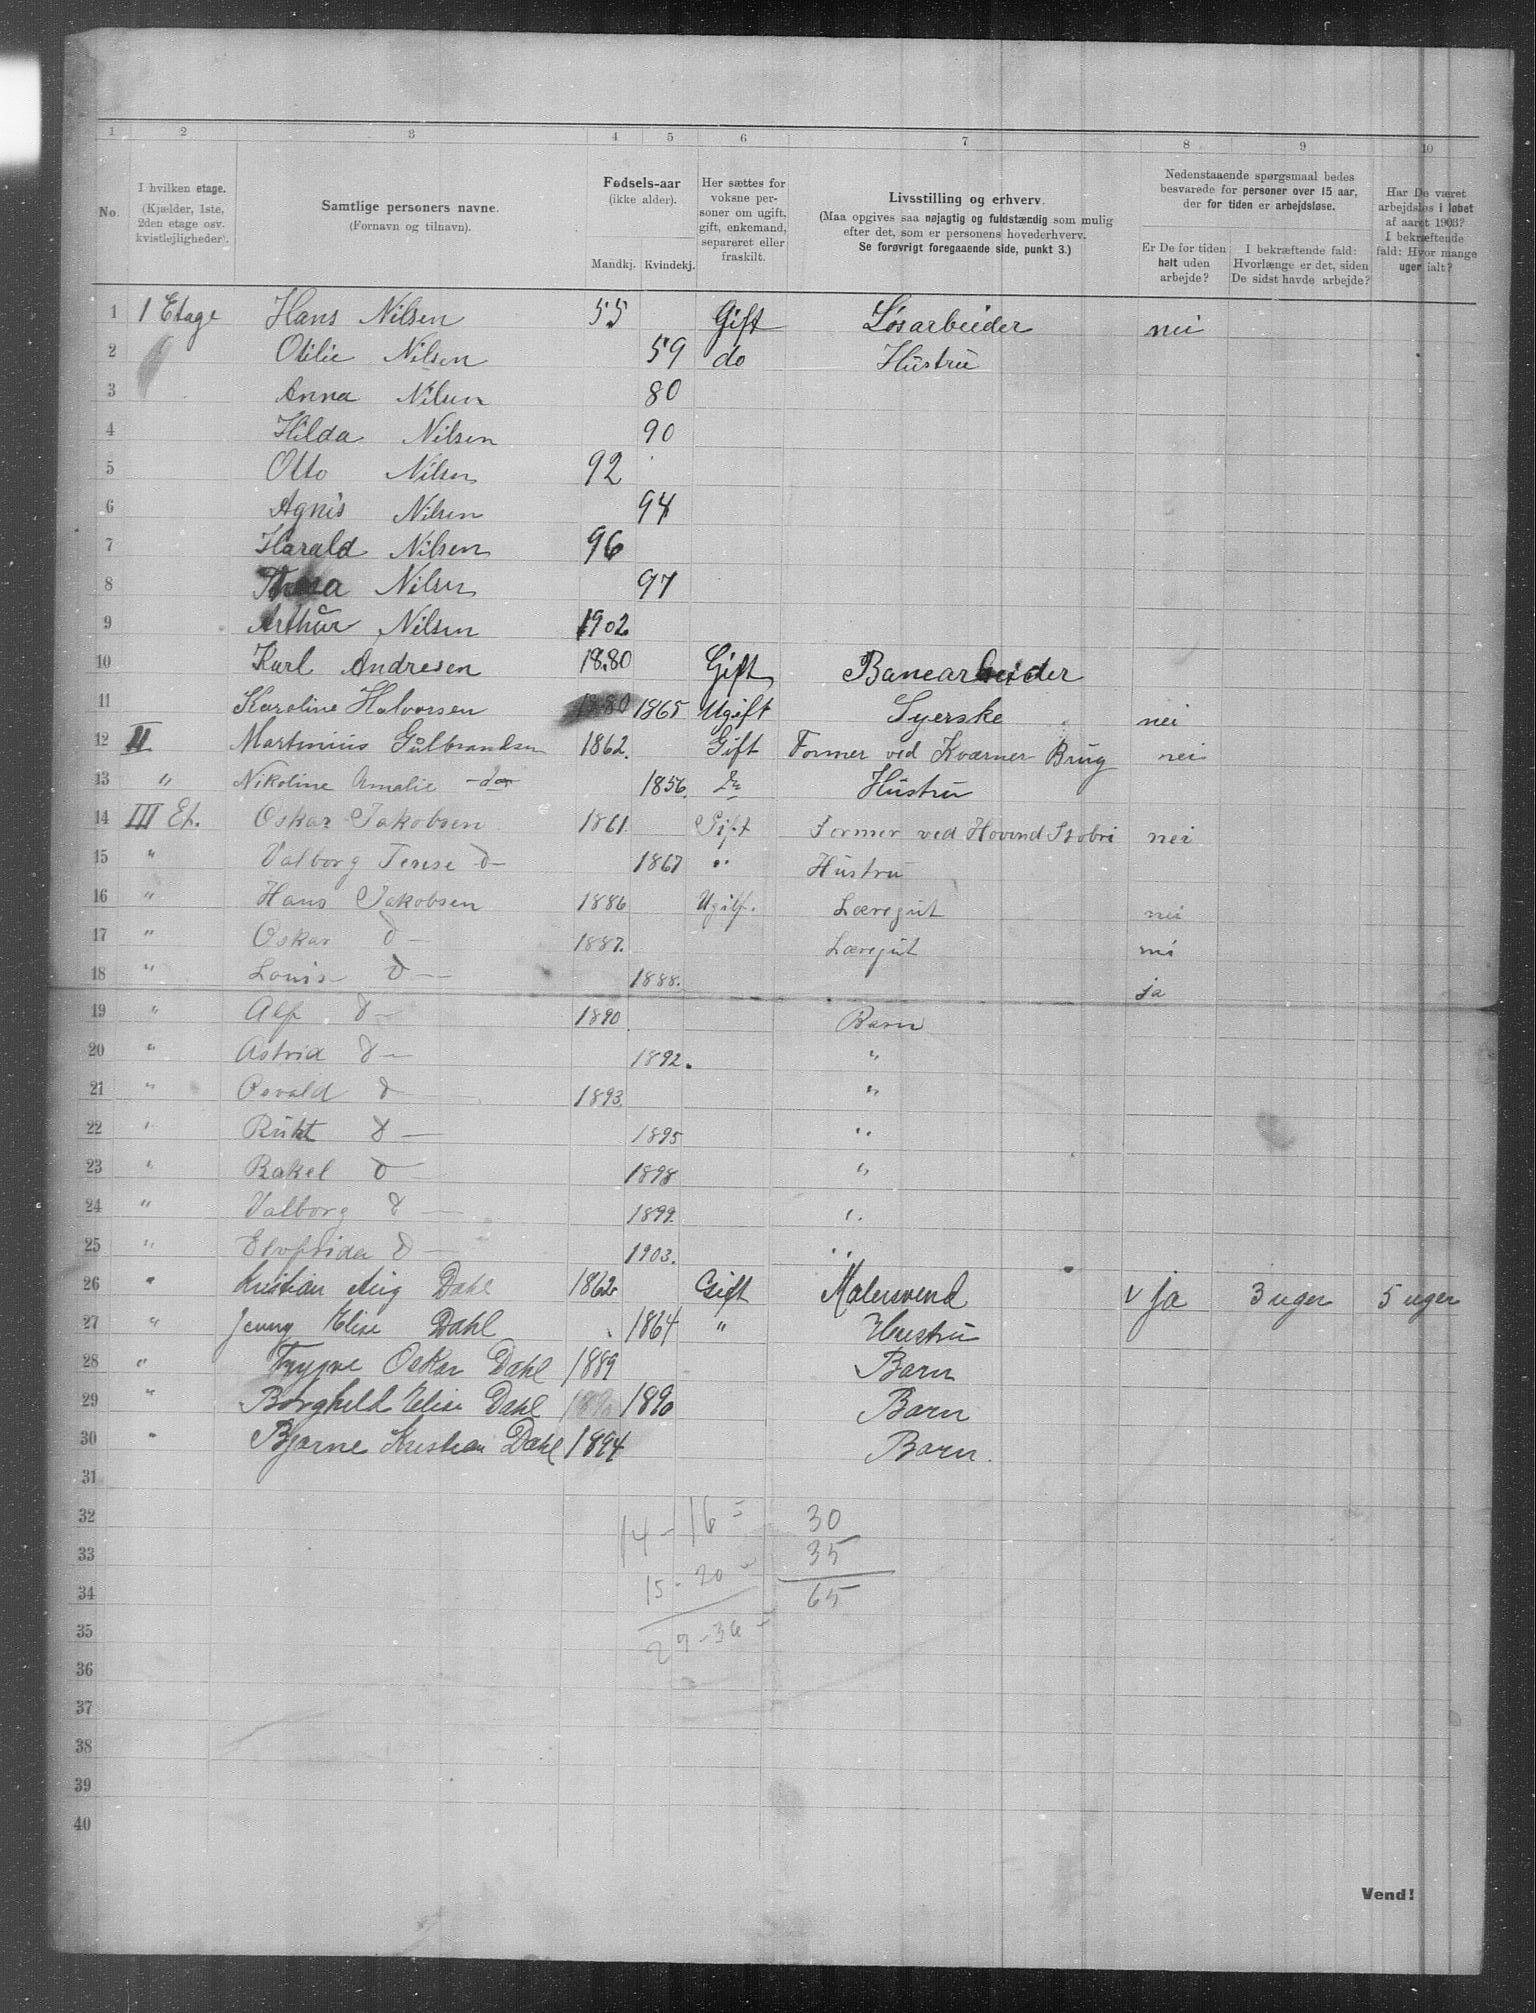 1 2 3 4 5 6 7 8 9 10
No.
I hvilken etage. (Kjælder, 1ste, 2den etage osv. kvistlejligheder).
Samtlige personers navne. (Fornavn og tilnavn).
Fødsels-aar (ikke alder).
Mandkj. Kvindekj.
Her sættes for voksne personer om ugift, gift, enkemand, separeret eller fraskilt.
Livsstilling og erhverv.
(Maa opgives saa nøjagtig og fuldstændig som mulig efter det, som er personens hovederhverv. Se forøvrigt foregaaende side, punkt 3.)
Nedenstaaende spørgsmaal bedes besvarede for personer over 15 aar, der for tiden er arbejdsløse.
Er De for tiden helt uden arbejde?
I bekræftende fald: Hvorlænge er det, siden De sidst havde arbejde?
Har De været arbejdsløs i løbet af aaret 1903? I bekræftende fald: Hvor mange uger ialt?
1 1 Etage Hans Nilsen 55 Gift Løsarbeider nei
2 Otilie Nilsen 59 do Hustru
3 Anna Nilsen 80
4 Hilda Nilsen 90
5 Otto Nilsen 92
6 Agnis Nilsen 94
7 Harald Nilsen 96
8 Nilsen 97
9 Arthur Nilsen 1902
10 Karl Andresen 1880 Gift Banearbeider
11 Karoline Halvorsen 1880 1865 Ugift Syerske nei
12 II Martinius Gulbrandsen 1862. Gift Former ved Kværner Brug nei
13 " Nikoline Amalie do 1856. Do Hustru
14 III Et. Oskar Jakobsen 1861. Gift Former ved Hovind Stobri nei
15 " Valborg Terese D— 1867 " Hustru
16 " Hans Jakobsen 1886 Ugift. Læregut nei
17 " Oskar D— 1887. Læregut nei
18 " Louis D— 1888. ja
19 " Alf D— 1890 Barn
20 " Astrid D— 1892. "
21 " Osvald D— 1893. "
22 " Rukt D— 1895 "
23 " Rakel D— 1898 "
24 " Valborg D— 1899. "
25 " Elvfrida D— 1903. "
26 " Kristian Aug Dahl 1862 Gift Malersvend v ja 3 uger 5 uger
27 " Jenny Elise Dahl 1864 " Hustru
28 " Trygve Oskar Dahl 1889 Barn
29 " Borghild Elise Dahl 1890 1890 Barn
30 " Bjarne Kristian Dahl 1894 Barn.
31
32 14 - 16 = 30
33 35
34 15 - 20 = 65
35 29 - 36 =
36
37
38
39
40
Vend!